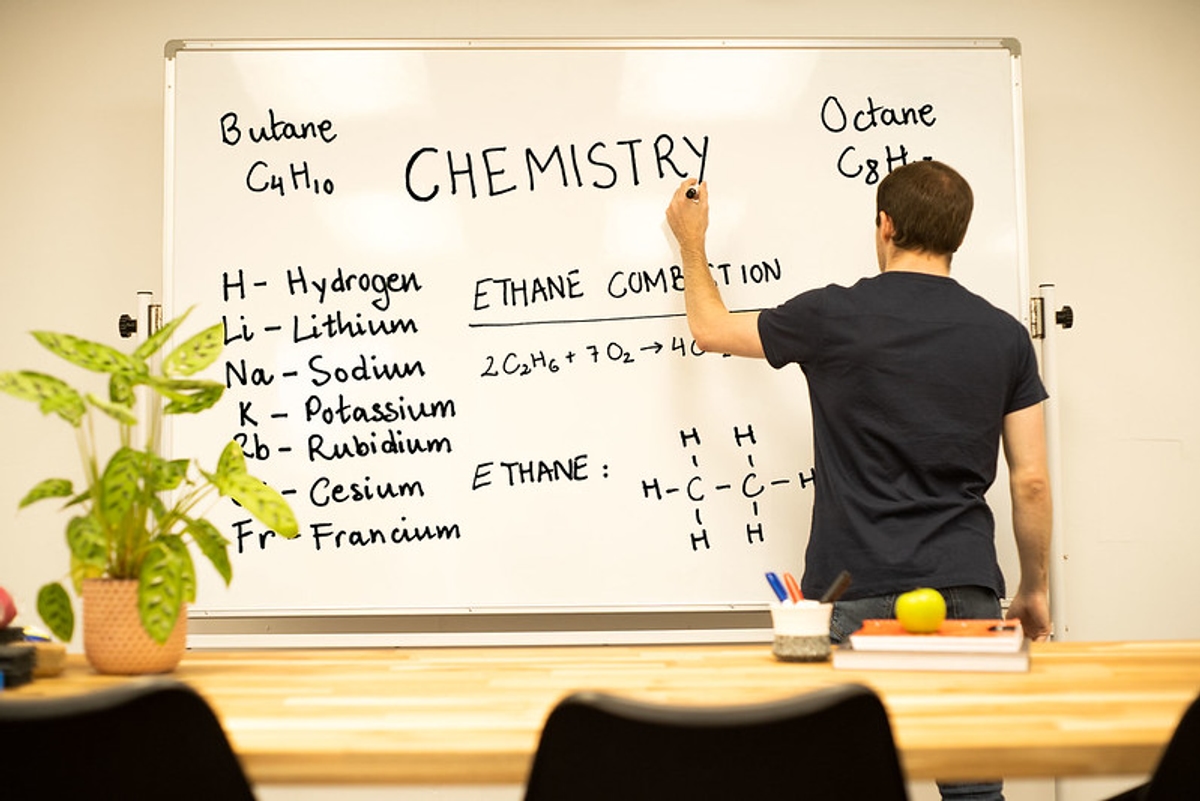 Butane
C₄H₁₀
CHEMISTRY
Octane
C₈H
H - Hydrogen
Li - Lithium
Na - Sodium
K - Potassium
Rb - Rubidium
- Cesium
Fr - Francium
ETHANE COMB TION
2C₂H₆ + 7O₂ → 4C
ETHANE:
H H
H - C - C - H
H H